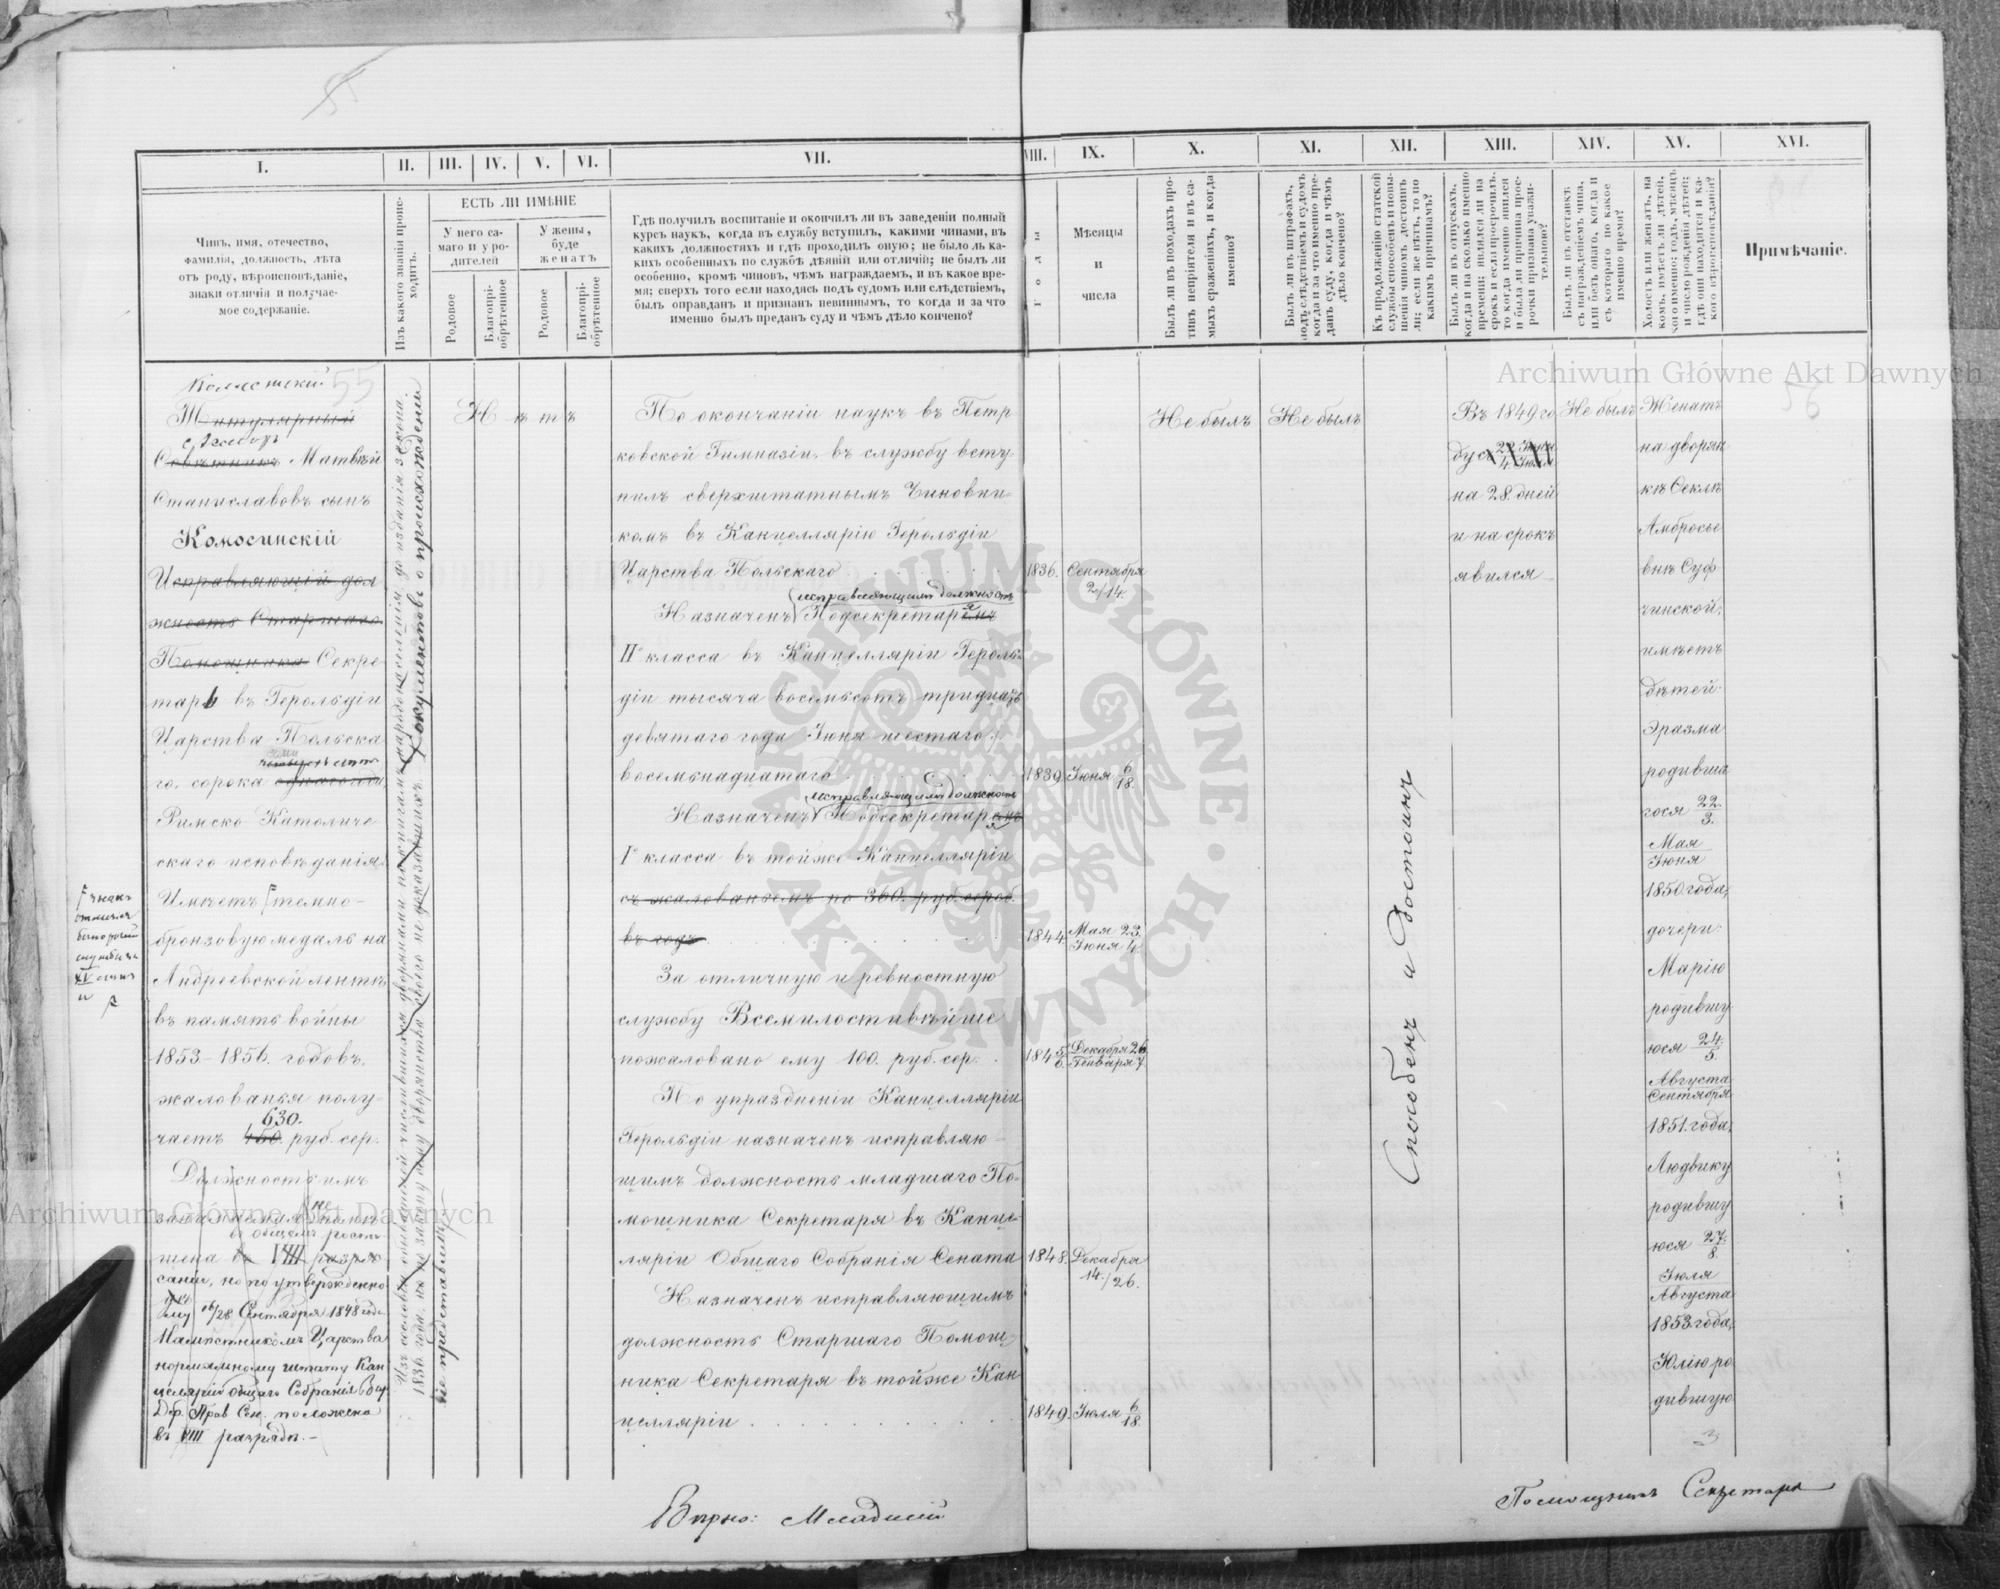 55
I.
II.
III.
IV.
V.
VI.
VII.
VIII.
IX.
X.
XI.
XII.
XIII.
XIV.
XV.
XVI.
Чинъ, имя, отечество,
фамилія, должность, лѣта
отъ роду, вѣроисповѣданіе,
знаки отличія и получае-
мое содержаніе.
Изъ какого званія проис-
ходитъ.
ЕСТЬ ЛИ ИМѢНІЕ
У него са-
маго и у ро-
дителей
У жены,
буде
женатъ
Родовое
Благопрі-
обрѣтенное
Родовое
Благопрі-
обрѣтенное
Гдѣ получилъ воспитаніе и окончилъ ли въ заведеніи полный
курсъ наукъ, когда въ службу вступилъ, какими чинами, въ
какихъ должностяхъ и гдѣ проходилъ оную; не было ль ка-
кихъ особенныхъ по службѣ дѣяній или отличій; не былъ ли
особенно, кромѣ чиновъ, чѣмъ награждаемъ, и въ какое вре-
мя; сверхъ того если находясь подъ судомъ или слѣдствіемъ,
былъ оправданъ и признанъ невиннымъ, то когда и за что
именно былъ преданъ суду и чѣмъ дѣло кончено?
Годы
Мѣсяцы
и
числа
Былъ ли въ походахъ про-
тивъ непріятеля и въ са-
мыхъ сраженіяхъ, и когда
именно?
Былъ ли въ штрафахъ,
подъ слѣдствіемъ и судомъ
когда и за что именно пре-
данъ суду, когда и чѣмъ
дѣло кончено?
Къ продолженію статской
службы способенъ и повы-
шенія чиномъ достоинъ
ли; если же нѣтъ, то по
какимъ причинамъ?
Былъ ли въ отпускахъ,
когда и на сколько именно
времени; являлся ли на
срокъ и если просрочилъ,
то когда именно явился
и была ли причина прос-
рочки признана уважи-
тельною?
Былъ ли въ отставкѣ
съ награжденіемъ чина,
или безъ онаго, когда и
съ котораго по какое
именно время?
Холостъ или женатъ, на
комъ, имѣетъ ли дѣтей,
кого именно; годъ, мѣсяцъ
и число рожденія дѣтей;
гдѣ они находятся и ка-
кого вѣроисповѣданія?
Примѣчаніе.
55
Титулярный
Совѣтникъ Матвѣй
Станиславовъ сынъ
Комосинскій
Исправляющій дол
жность Старшаго
Помощника Секре
тарь въ Герольдіи
Царства Польска
го. сорока
Римско Католиче
скаго исповѣданія.
Имѣетъ темно-
бронзовую медаль на
Андреевской лентѣ
въ память войны
1853-1856. годовъ.
жалованья полу-
630.
чаетъ 450. руб. сер:
Должность имъ
занимаемая не
VIII
но по утвержденно
му 16/28 Сентября 1848 года
Намѣстникомъ Царства
нормальному штату Кан
целяріи общаго Собранія Вар
Деп. Прав Сен. положена
въ VIII разрядъ.-
знакъ
отличія
безпорочной
службы за
XV лѣтъ
и
документовъ о происхожденіи
не представилъ.
Нѣтъ
По окончаніи наукъ въ Петр
ковской Гимназіи, въ службу всту
пилъ сверхштатнымъ Чиновни-
комъ въ Канцеллярію Герольдіи
Царства Польскаго
1836. Сентября
2/14.
исправляющимъ должность
Назначенъ Подсекретаремъ
IIго класса въ Канцелляріи Героль-
діи тысяча восемьсотъ тридцать
девятаго года Іюня шестаго/
восемьнадцатаго
1839. Іюня 6/18.
исправляющимъ должность
Назначенъ Подсекретаремъ
Iго класса въ тойже Канцелляріи
съ жалованьемъ по 360. руб. сереб.
въ годъ
1844. Мая 23.
Іюня 4.
За отличную и ревностную
службу Всемилостивѣйше
пожаловано ему 100. руб. сер.
1845/6. Декабря 26
Генваря 7.
По упраздненіи Канцелляріи
Герольдіи назначенъ исправляю-
щимъ должность младшаго По-
мощника Секретаря въ Канце-
ляріи Общаго Собранія Сената
1848. Декабря
14./26.
Назначенъ исправляющимъ
должность Старшаго Помощ-
ника Секретаря въ тойже Кан
целляріи
1849. Іюля 6/18.
Не былъ
Не былъ
Способенъ и достоинъ
Въ 1849 го
ду съ 22 Іюня
4 Іюля
на 28. дней
и на срокъ
явился
Не былъ
Женатъ
на дворян
кѣ Феклѣ
Амбросье
внѣ Суф
чинской;
имѣетъ
дѣтей:
Эразма
родивша
гося 22/3.
Мая
Іюня
1850 года,
дочери:
Марію
родившу
юся 24/5.
Августа
Сентября
1851. года,
Людвику
родившу
юся 27/8.
Іюля
Августа
1853. года,
Юлію ро
дившую
56
3
Вѣрно: Младшій
Помощникъ Секретаря
Archiwum Główne Akt Dawnych
Archiwum Główne Akt Dawnych
ARCHIWUM GŁÓWNE
AKT DAWNYCH